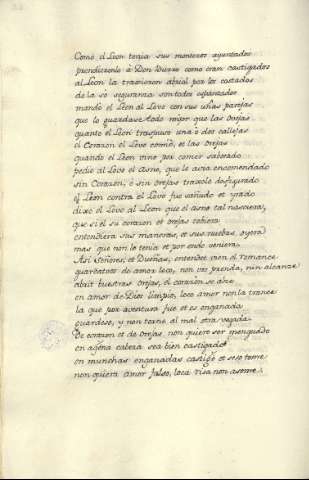 Como el Leon tenia sus monteros ayuntados
prendieronlo à Don Burro como eran castigados
al Leon la travieron abriol por los costados
de la so segurança son todos espantados
mandò el Leon al Lovo con sus uñas parejas
que lo guardase todo mijor que las ovejas
quanto el Leon traspuso una ò dos callejas
el Corazon el Lovo comiò, et las orejas
quando el Leon vino por comer saborado
pediò al Lovo el asno, que le avia encomendado
sin Corazon, è sin orejas traxole desfigurado
el Leon contra el Lovo fue sañudo et yrado
dixo el Lovo al Leon que el asno tal nasciera,
que si el su corazon et orejas toviera
entendiera sus maneras, et sus nuebas oyera
mas que non lo tenia et por endo veniera.
Asi señores, et Dueñas, entendet vien el romance
guardatvos de amor loco, non vos prenda, nin alcanze
abrit vuestras orejas, el corazon se lanze
en amor de Dios limpio, loco amor non la trance
la que por aventura fue et es enganada
guardese, y non torne al mal otra vegada
De corazon et de orejas non quiera ser menguada
en agena cabeza sea bien castigada
en munchas enganadas castigo et seso tome
non quiera amor falso, loca risa non asome